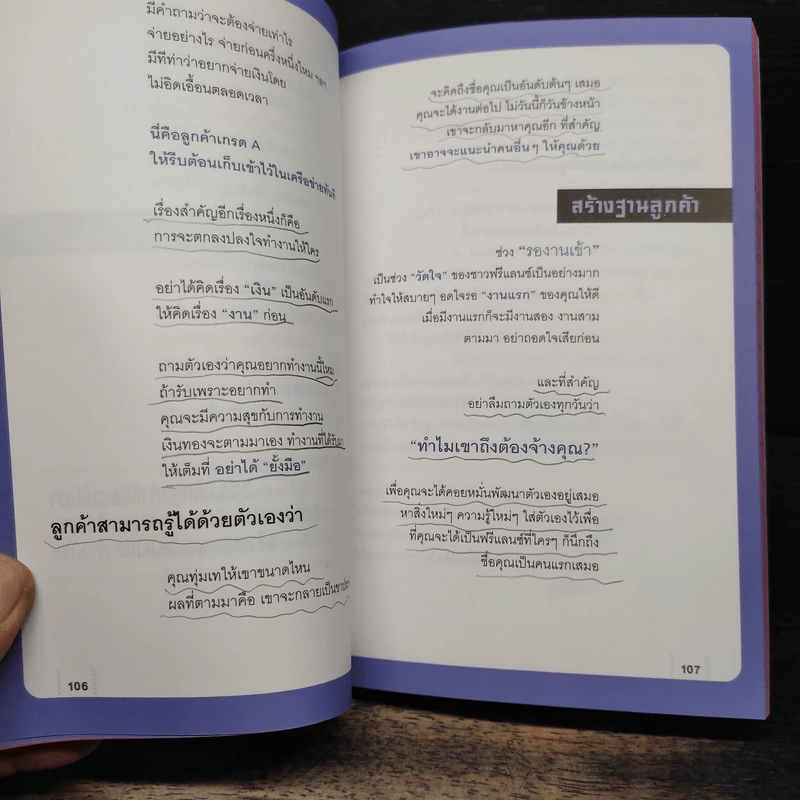 มีคำถามว่าจะต้องจ่ายเท่าไร
จ่ายอย่างไร จ่ายก่อนครึ่งหนึ่งไหม ฯลฯ
มีทีท่าว่าอยากจ่ายเงินโดย
ไม่อิดเอื้อนตลอดเวลา
นี่คือลูกค้าเกรด A
ให้รีบต้อนเก็บเข้าไว้ในเครือข่ายทันที
เรื่องสำคัญอีกเรื่องหนึ่งก็คือ
การจะตกลงปลงใจทำงานให้ใคร
อย่าได้คิดเรื่อง “เงิน” เป็นอันดับแรก
ให้คิดเรื่อง “งาน” ก่อน
ถามตัวเองว่าคุณอยากทำงานนี้ไหม
ถ้ารับเพราะอยากทำ
คุณจะมีความสุขกับการทำงาน
เงินทองจะตามมาเอง ทำงานที่ได้รับมา
ให้เต็มที่ อย่าได้ “ยั้งมือ”
ลูกค้าสามารถรู้ได้ด้วยตัวเองว่า
คุณทุ่มเทให้เขาขนาดไหน
ผลที่ตามมาคือ เขาจะกลายเป็น
106
จะคิดถึงชื่อคุณเป็นอันดับต้นๆ เสมอ
คุณจะได้งานต่อไป ไม่วันนี้ก็วันข้างหน้า
เขาจะกลับมาหาคุณอีก ที่สำคัญ
เขาอาจจะแนะนำคนอื่นๆ ให้คุณด้วย
สร้างฐานลูกค้า
ช่วง “รองานเข้า”
เป็นช่วง “วัดใจ” ของชาวฟรีแลนซ์เป็นอย่างมาก
ทำใจให้สบายๆ อดใจรอ “งานแรก” ของคุณให้ดี
เมื่อมีงานแรกก็จะมีงานสอง งานสาม
ตามมา อย่าถอดใจเสียก่อน
และที่สำคัญ
อย่าลืมถามตัวเองทุกวันว่า
“ทำไมเขาถึงต้องจ้างคุณ?”
เพื่อคุณจะได้คอยหมั่นพัฒนาตัวเองอยู่เสมอ
หาสิ่งใหม่ๆ ความรู้ใหม่ๆ ใส่ตัวเองไว้เพื่อ
ที่คุณจะได้เป็นฟรีแลนซ์ที่ใครๆ ก็นึกถึง
ชื่อคุณเป็นคนแรกเสมอ
107